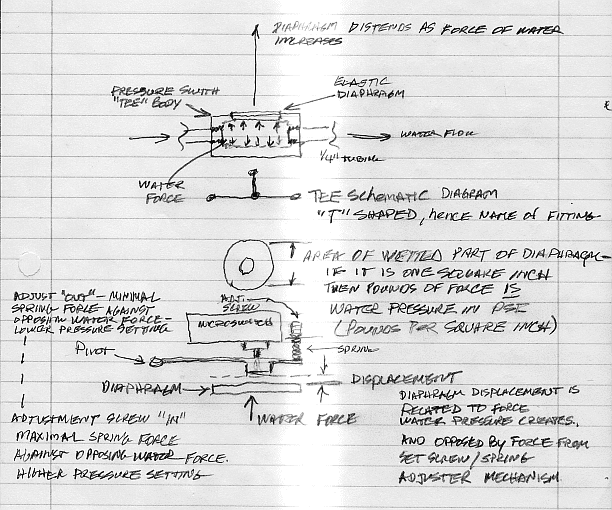 DIAPHRAGM DISTENDS AS FORCE OF WATER
INCREASES
PRESSURE SWITH
"TEE" BODY
ELASTIC
DIAPHRAGM
WATER FLOW
1/4" TUBING
WATER
FORCE
TEE SCHEMATIC DIAGRAM
"T" SHAPED, HENCE NAME OF FITTING
AREA OF WETTED PART OF DIAPHRAGM-
IF IT IS ONE SQUARE INCH
THEN POUNDS OF FORCE IS
WATER PRESSURE IN PSI
(POUNDS PER SQUARE INCH)
ADJUST "OUT" - MINIMAL
SPRING FORCE AGAINST
OPPOSITN WATER FORCE-
LOWER PRESSURE SETTING
ADJ.
SCREW
MICROSWITCH
SPRING
PIVOT
DIAPHRAGM
DISPLACEMENT
WATER FORCE
ADJUSTMENT SCREW "IN"
MAXIMAL SPRING FORCE
AGAINST OPPOSING WATER FORCE.
HIGHER PRESSURE SETTING
DIAPHRAGM DISPLACEMENT IS
RELATED TO FORCE
WATER PRESSURE CREATES.
AND OPPOSED BY FORCE FROM
SET SCREW/SPRING
ADJUSTER MECHANISM